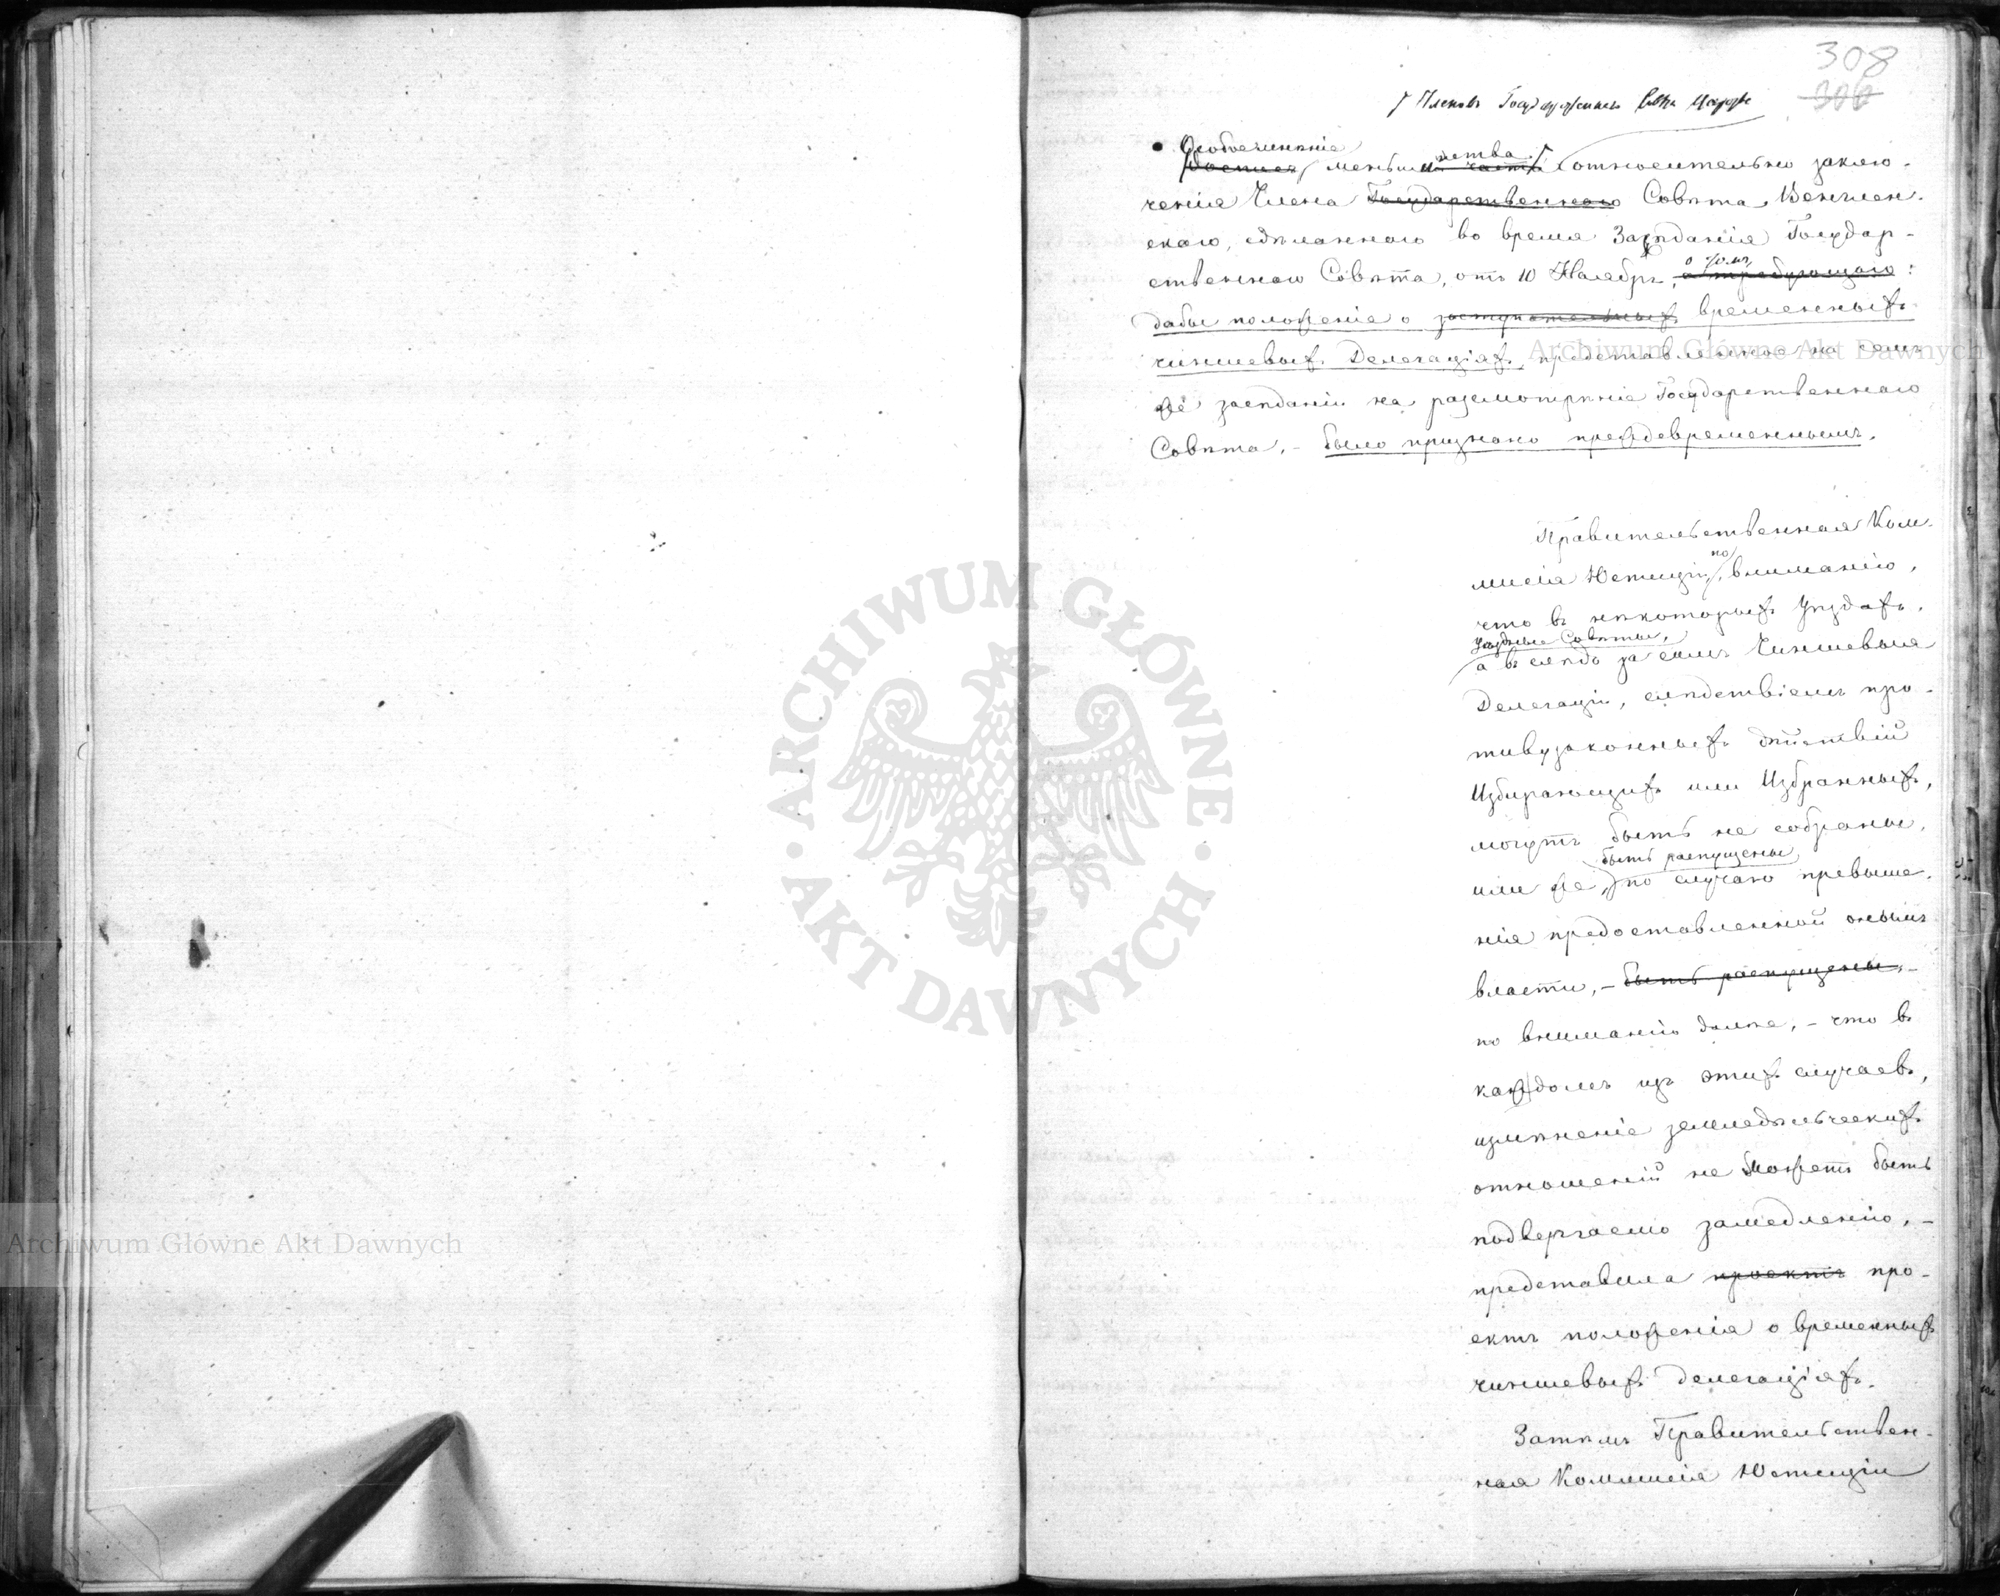 308
306
Членовъ Государственнаго Совѣта
Особое мнѣніе
меньшинства относительно заклю-
ченія Члена Государственнаго Совѣта Венглен-
скаго, сдѣланнаго во время Засѣданія Государ-
ственнаго Совѣта, отъ 10 Ноября, о томъ, а требующаго:
дабы положеніе о заступательныхъ временныхъ
чиншевыхъ Делегаціяхъ, представленное на семъ
же засѣданіи на разсмотрѣніе Государственнаго
Совѣта, - было признано преждевременнымъ.
Правительственная Ком-
мисія Юстиціи, по вниманію,
что въ нѣкоторыхъ Уѣздахъ,
Уѣздные Совѣты,
а въ слѣдъ за симъ Чиншевыя
Делегаціи, слѣдствіемъ про-
тивузаконныхъ дѣйствій
Избирающихъ или Избранныхъ,
могутъ быть не собраны,
быть распущены
или же, по случаю превыше-
нія предоставленной онымъ
власти, - быть распущены, -
по вниманію далѣе, - что въ
каждомъ изъ этихъ случаевъ,
измѣненіе земледѣльческихъ
отношеній не можетъ быть
подвергаемо замедленію, -
представила проектъ про-
ектъ положенія о временныхъ
чиншевыхъ делегаціяхъ.
Затѣмъ Правительствен-
ная Коммисія Юстиціи
ARCHIWUM GŁÓWNE AKT DAWNYCH
Archiwum Główne Akt Dawnych
Archiwum Główne Akt Dawnych